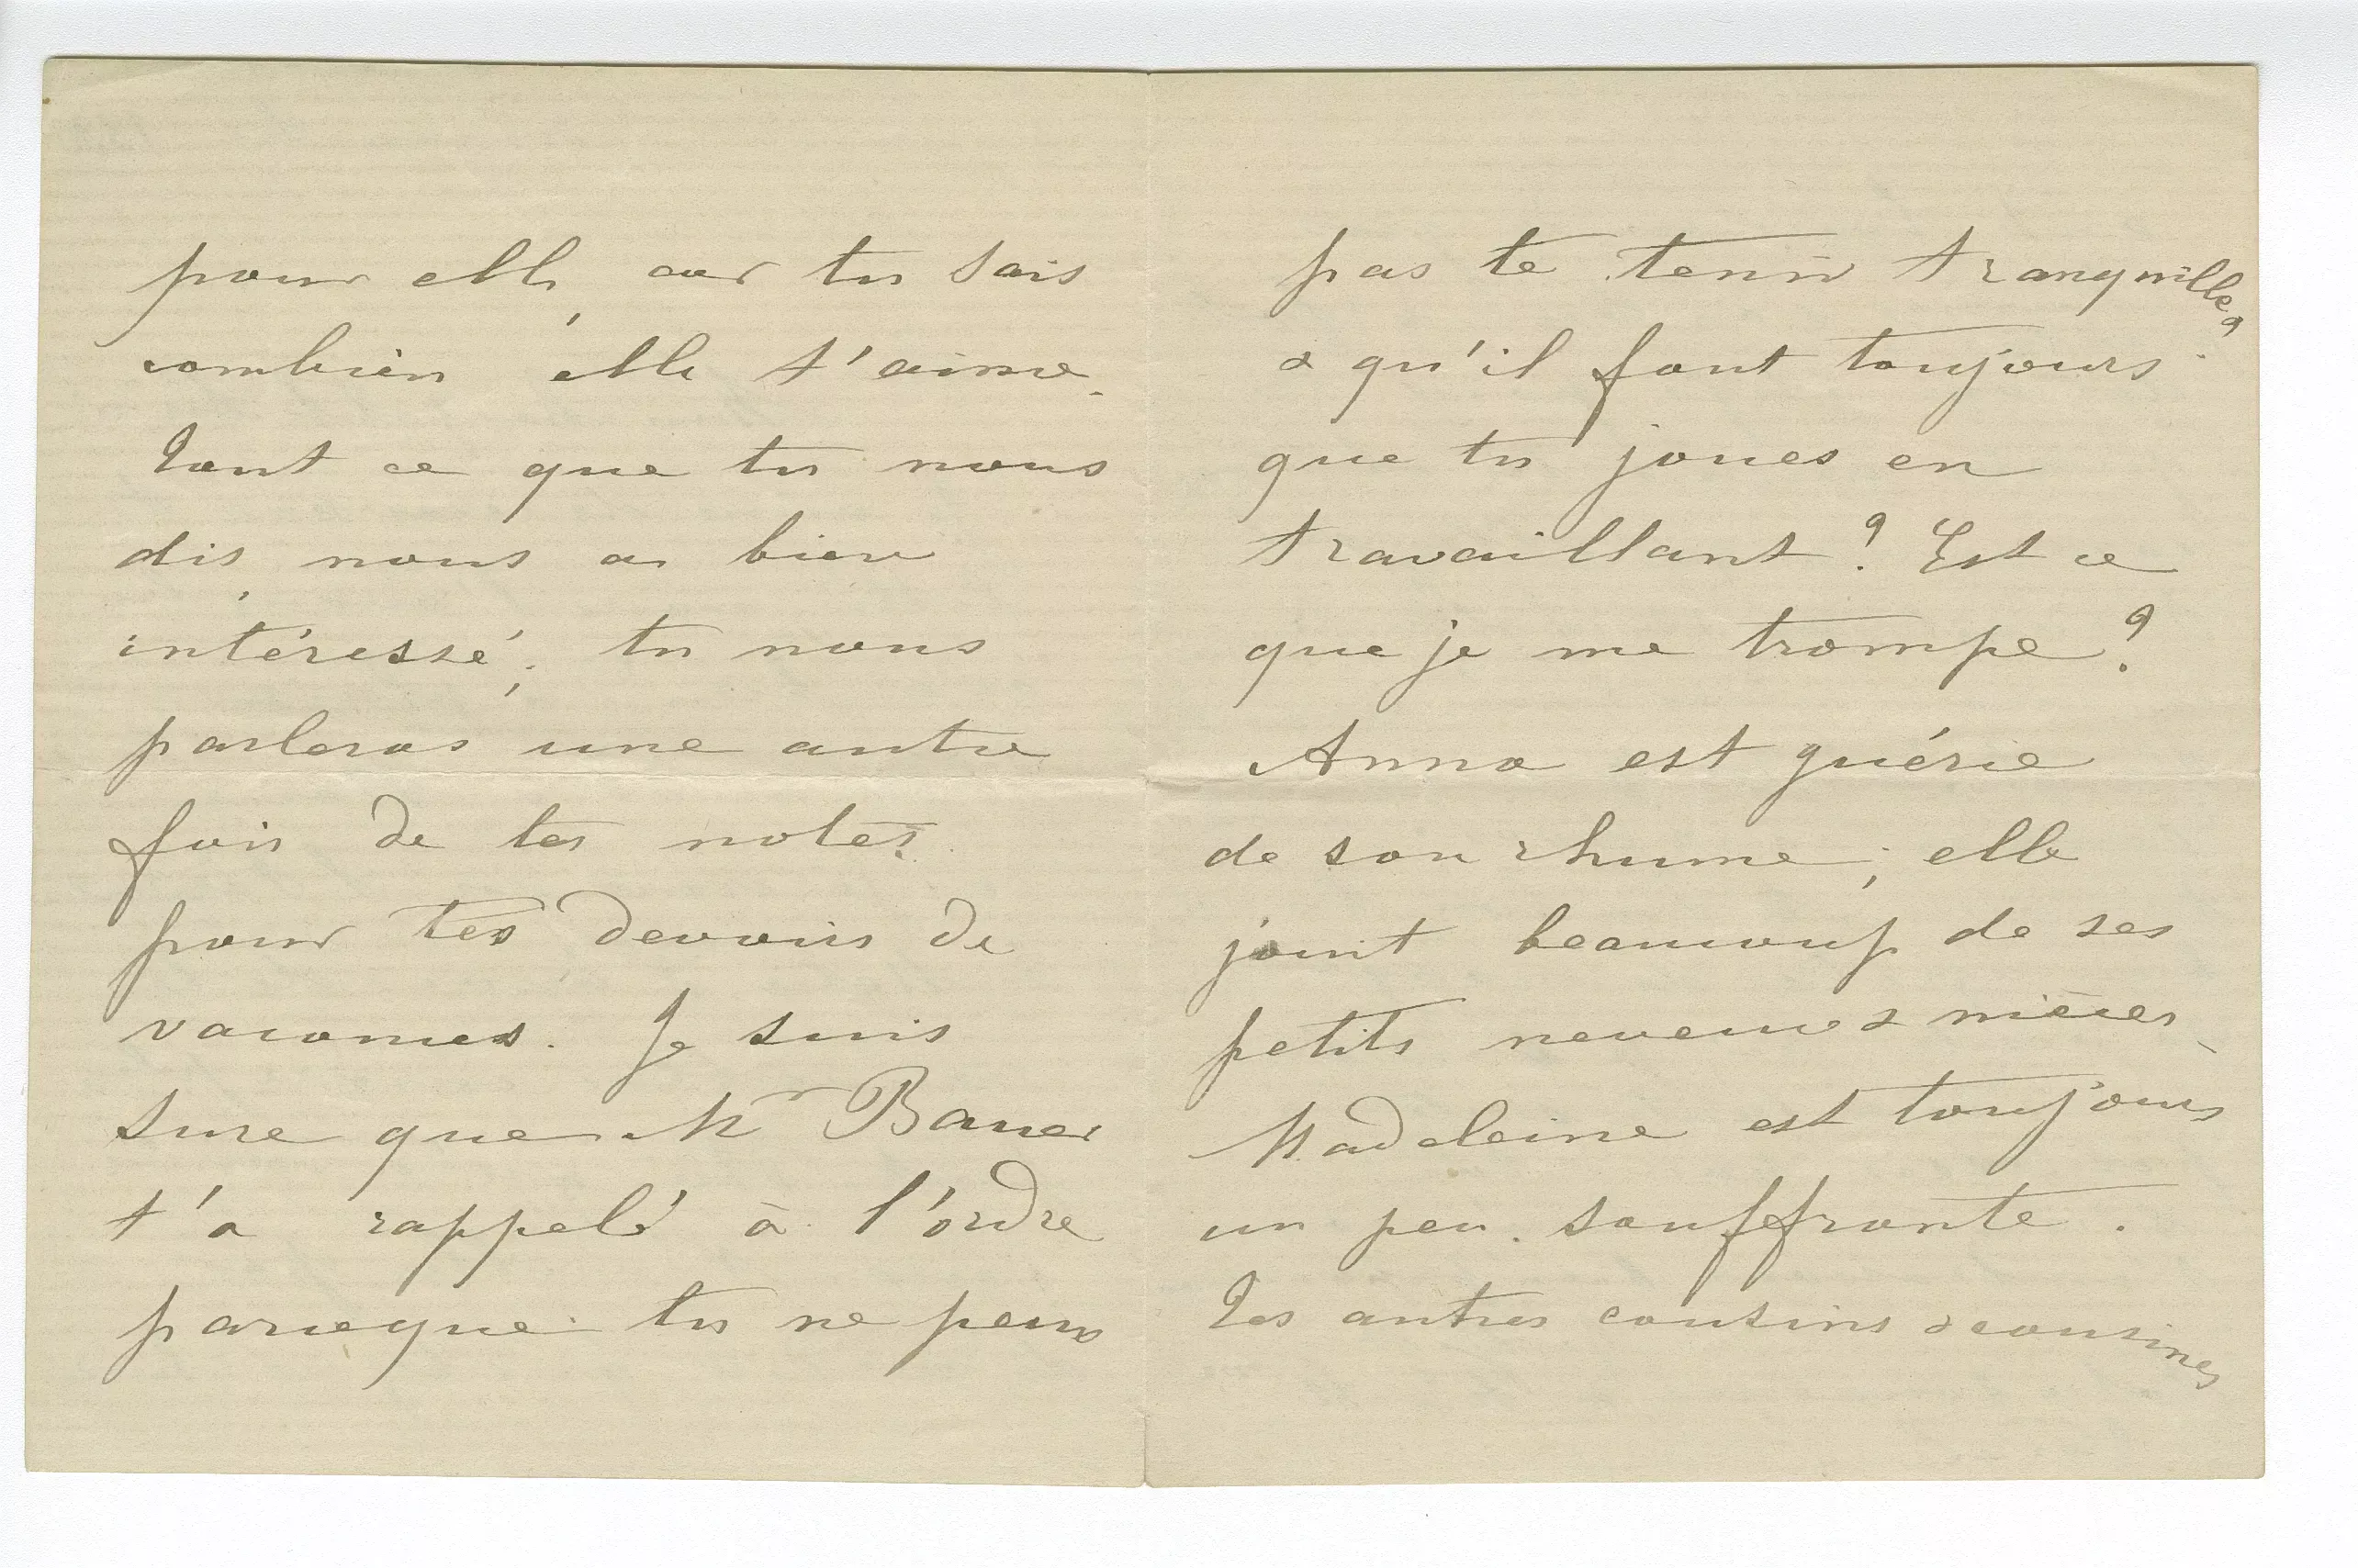 pour elle, car tu sais
combien elle t'aime.
Tout ce que tu nous
dis, nous a bien
intéressé; tu nous
parleras une autre
fois de tes notes
pour tes devoirs de
vacances. Je suis
sure que Mr Bauer
t'a rappelé à l'ordre
parceque tu ne peux
pas te tenir tranquille,
& qu'il faut toujours
que tu joues en
travaillant? Est ce
que je me trompe?
Anna est guérie
de son rhume; elle
jouit beaucoup de ses
petits neveux & nièces.
Madeleine est toujours
un peu souffrante.
Les autres cousins & cousines